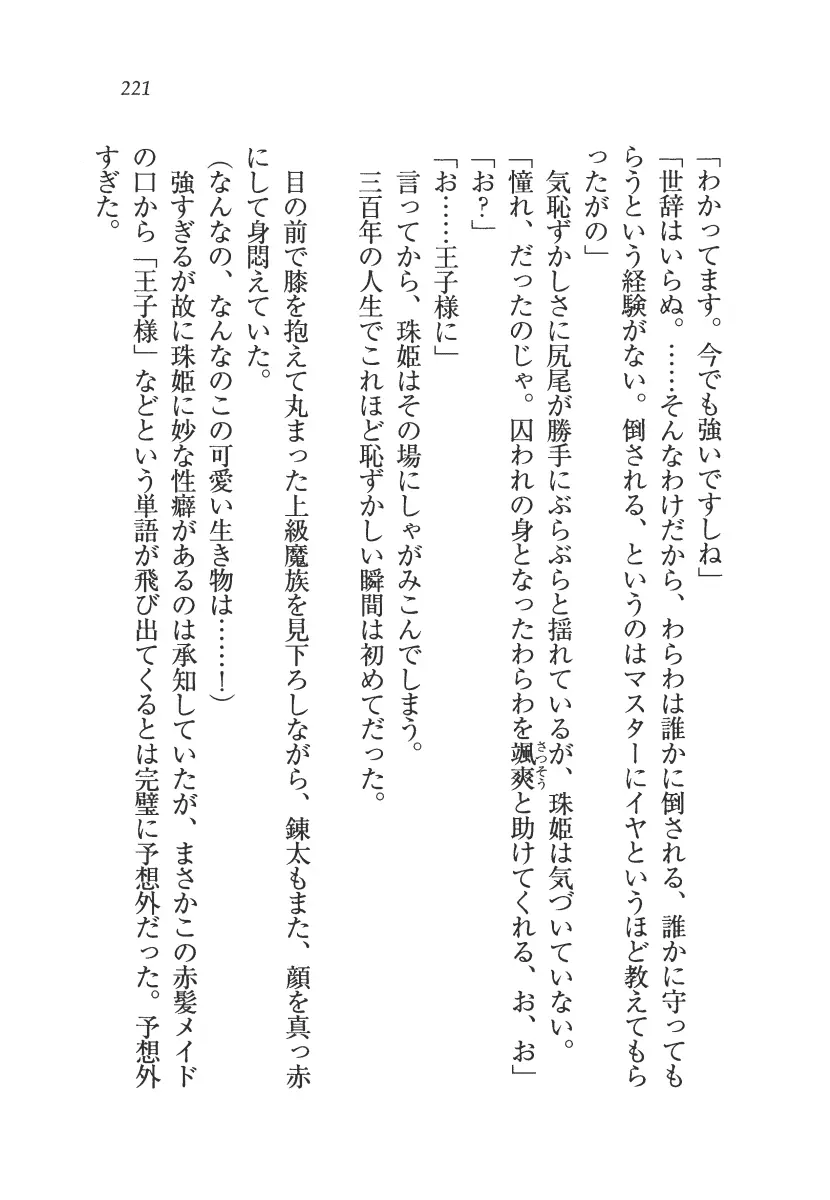 221
「わかってます。今でも強いですしね」
「世辞はいらぬ。……そんなわけだから、わらわは誰かに倒される、誰かに守っても
らうという経験がない。倒される、というのはマスターにイヤというほど教えてもら
ったがの」
気恥ずかしさに尻尾が勝手にぶらぶらと揺れているが、珠姫は気づいていない。
「憧れ、だったのじゃ。囚われの身となったわらわを颯爽と助けてくれる、お、お」
さっそう
「お?」
「お……王子様に」
言ってから、珠姫はその場にしゃがみこんでしまう。
三百年の人生でこれほど恥ずかしい瞬間は初めてだった。
目の前で膝を抱えて丸まった上級魔族を見下ろしながら、錬太もまた、顔を真っ赤
にして身悶えていた。
(なんなの、なんなのこの可愛い生き物は……!)
強すぎるが故に珠姫に妙な性癖があるのは承知していたが、まさかこの赤髪メイド
の口から「王子様」などという単語が飛び出てくるとは完璧に予想外だった。予想外
すぎた。